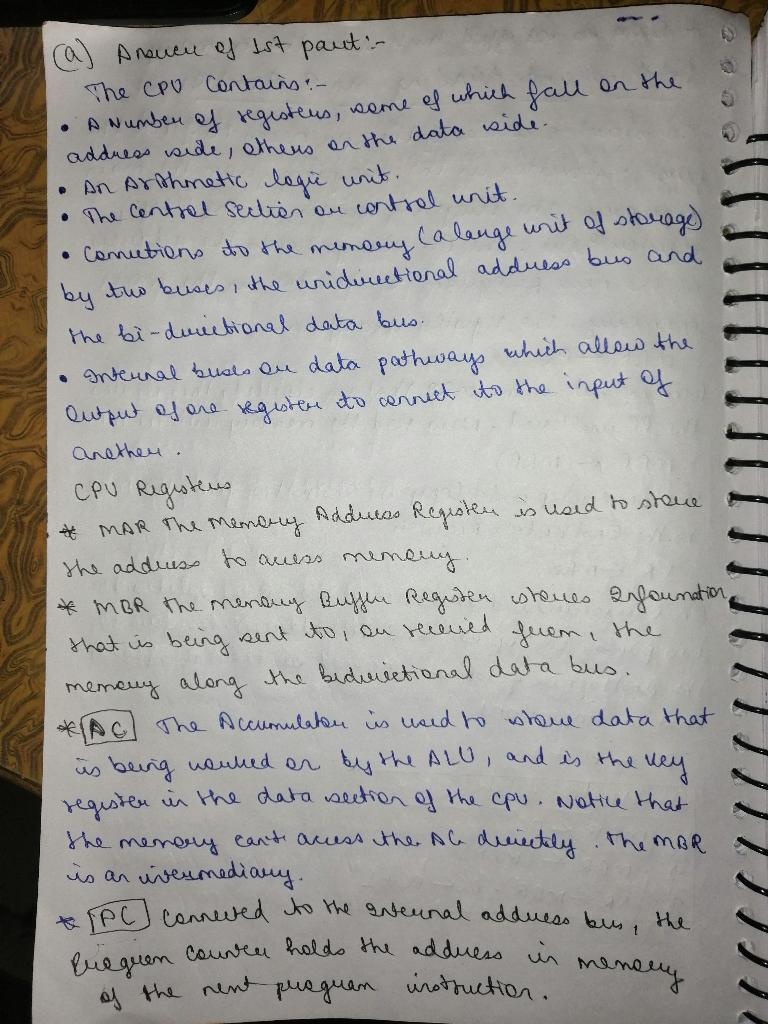 (a) Answer of 1st part:-
The CPU Contains:-
• A Number of registers, some of which fall on the
address side, others on the data side.
• An Arithmetic logic unit.
• The Control Section or control unit.
• Connections to the memory (a large unit of storage)
by two buses, the unidirectional address bus and
the bi-directional data bus.
• Internal buses or data pathways which allow the
Output of one register to connect to the input of
another.
CPU Registers
* MAR The Memory Address Register is used to store
the address to access memory.
* MBR The memory Buffer Register stores Information
that is being sent to, or received from, the
memory along the bidirectional data bus.
* AC The Accumulator is used to store data that
is being worked on by the ALU, and is the key
register in the data section of the CPU. Notice that
the memory can't access the AC directly. The MBR
is an intermediary.
* PC Connected to the internal address bus, the
Program counter holds the address in memory
of the next program instruction.